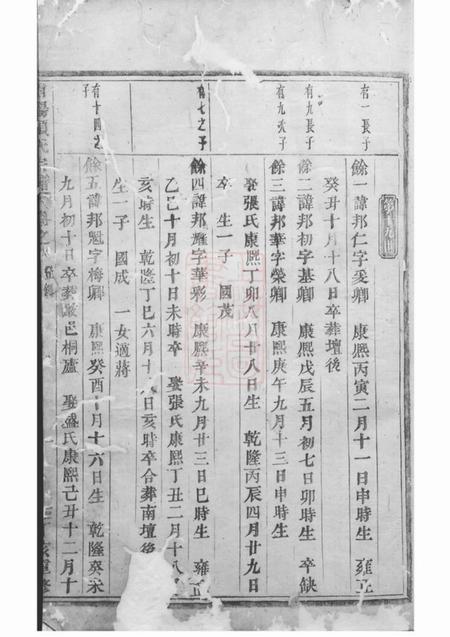 有一長子
餘一諱邦仁字爰卿 康熙丙寅二月十一日申時生 雍正
癸丑十月十八日卒葬壇後
有九長子
餘二諱邦初字基卿 康熙戊辰五月初七日卯時生 卒缺
有九次子
餘三諱邦華字榮卿 康熙庚午九月十三日申時生
娶張氏康熙丁卯八月廿八日生 乾隆丙辰四月廿九日
卒 生一子 國茂
有七之子
餘四諱邦耀字華彩 康熙辛未九月廿三日巳時生 雍正
乙巳十月初十日未時卒 娶張氏康熙丁丑二月十八
亥時生 乾隆丁巳六月十 日亥時卒合葬南壇後
生一子 國成 一女適蔣
有十四之子
餘五諱邦魁字梅卿 康熙癸酉十月十六日生 乾隆癸未
九月初十日卒葬 巳桐廬 娶盛氏康熙己丑十二月十
氏宗譜
重修